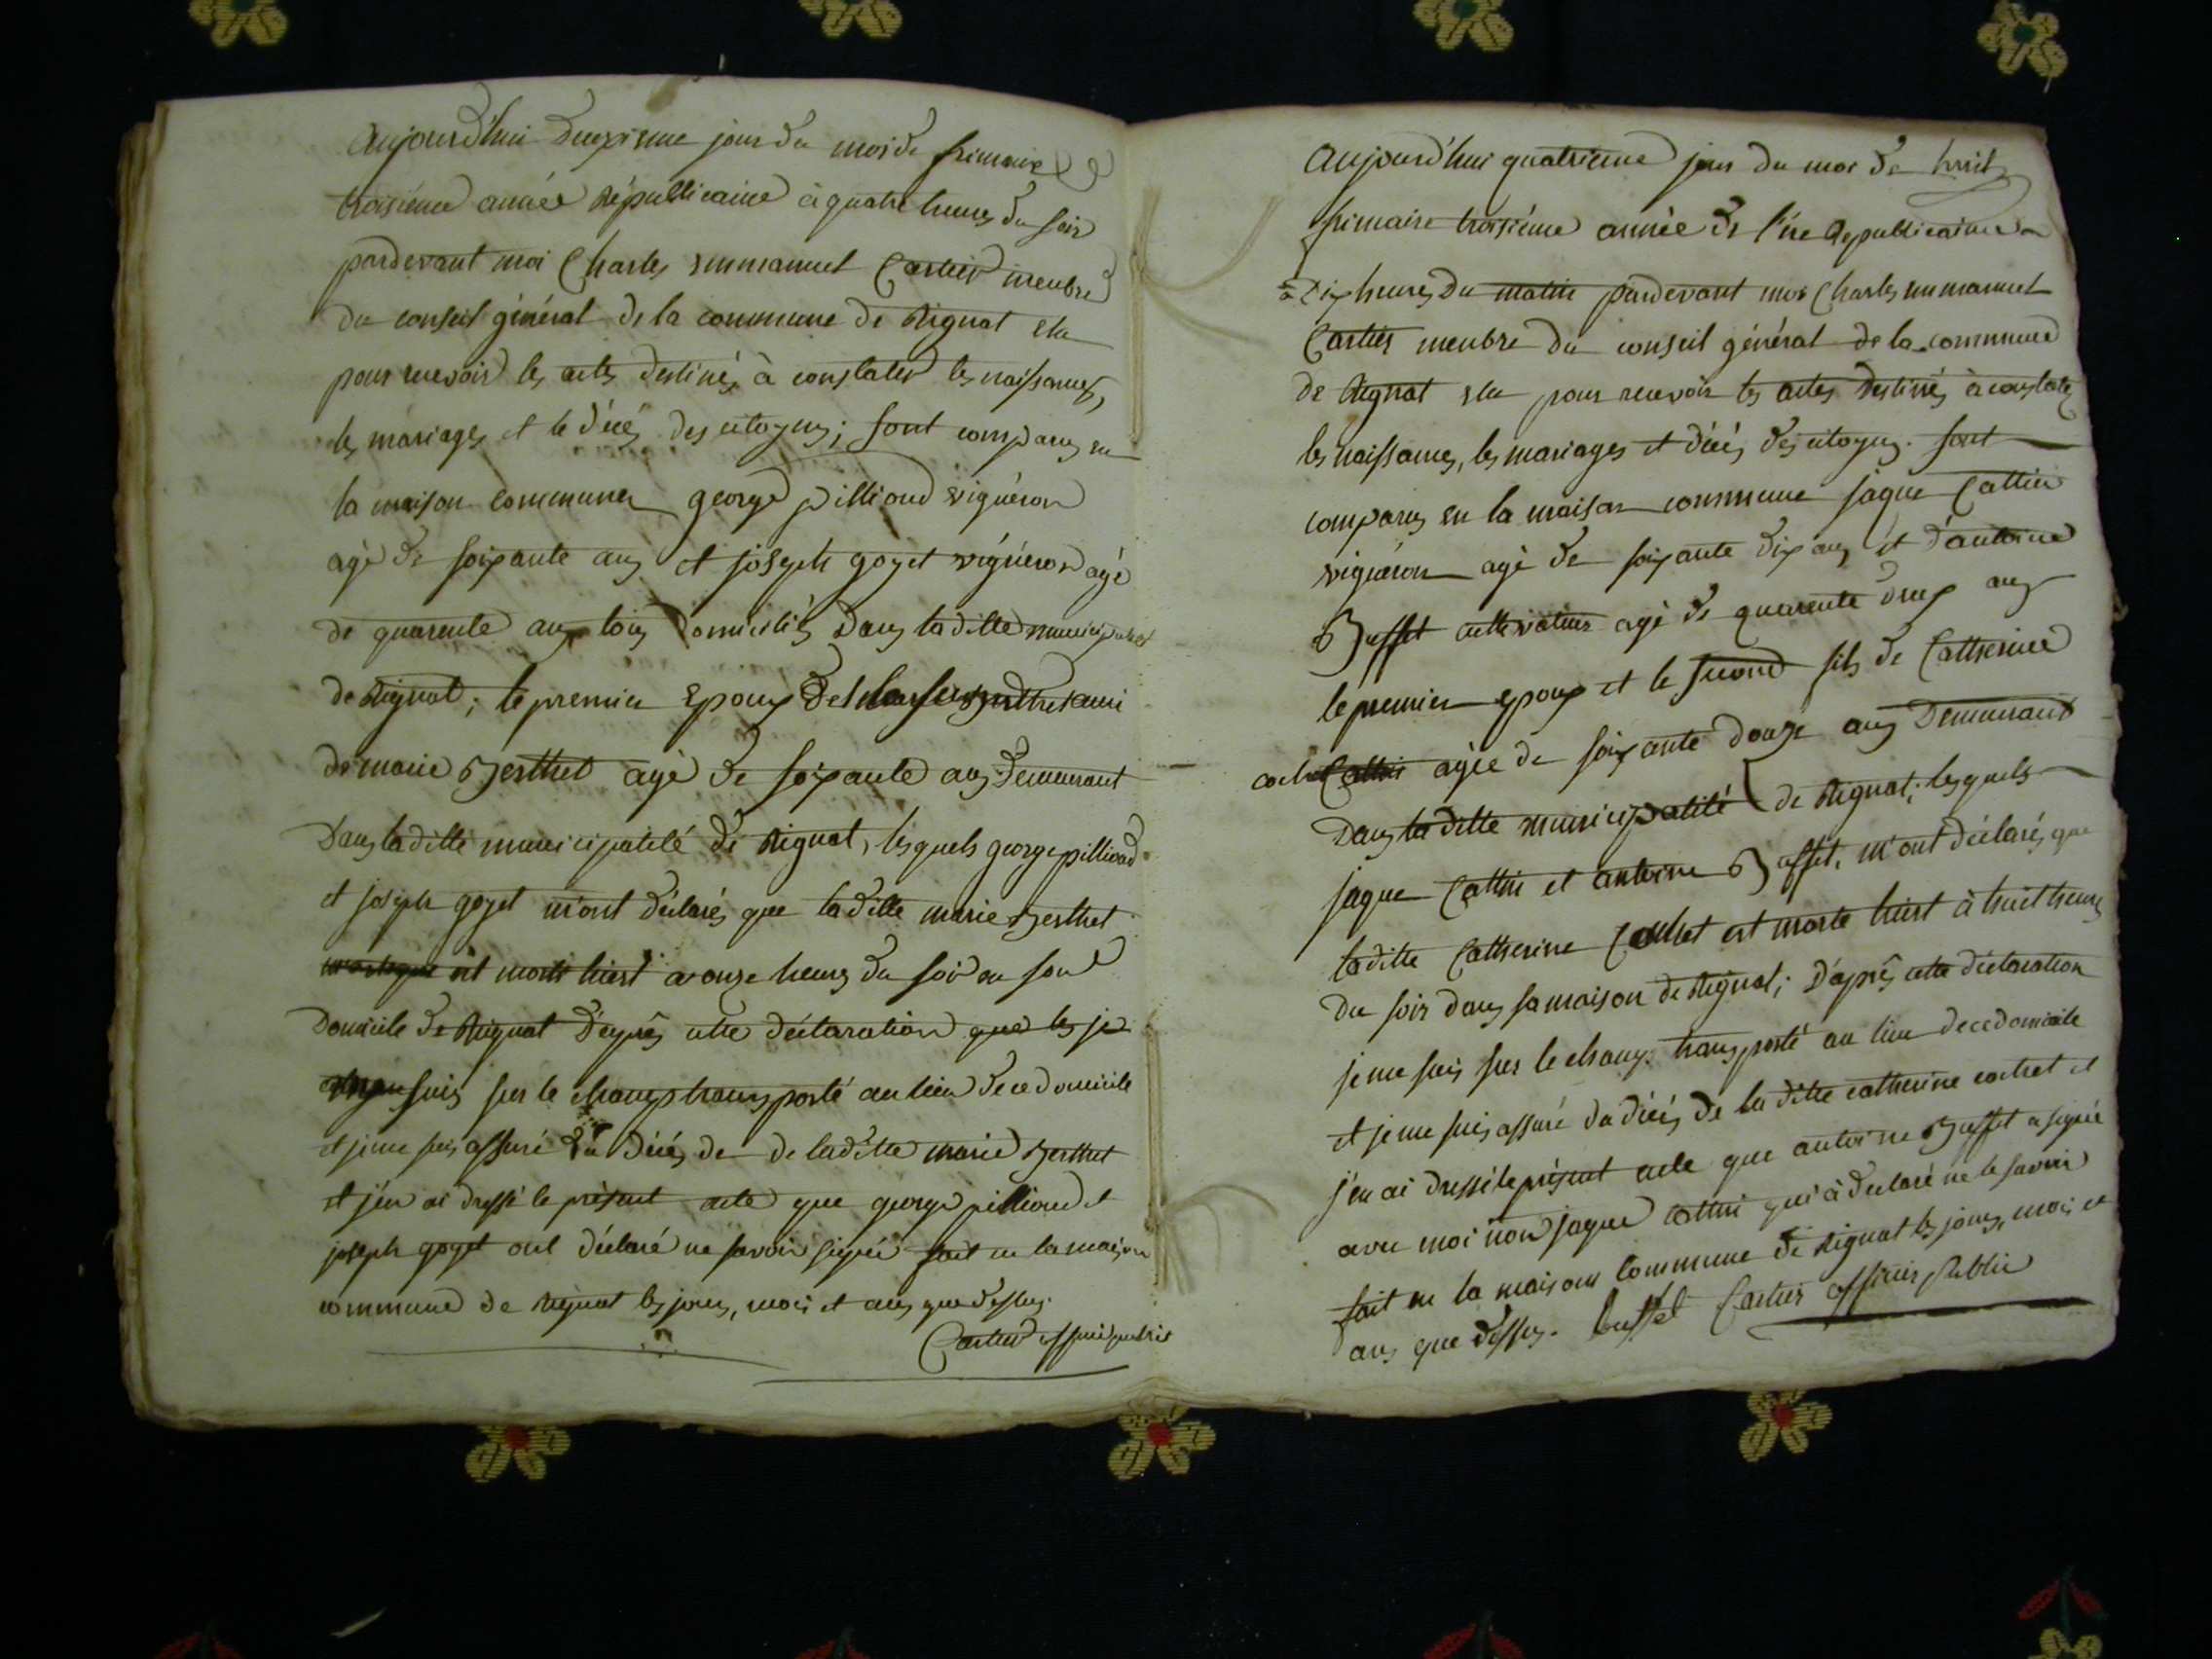 aujourd'hui deuxieme jour du mois de frimaire
troisiéme année Républicaine à quatre heures du soir
pardevant moi Charles emmanuel Cartier menbre
du conseil général de la commune de Rignat elu
pour recevoir les actes destinés à constater les naissances,
les mariages et le décés des citoyens; sont comparus en
la maison commune george pillioud vignéron
agé de soixante ans et joseph goyet vignéron agé
de quarente ans tous domiciliés dans la ditte municipalité
de Rignat; le premier epoux
de marie Berthet agé de soixante ans demeurant
dans la ditte municipalité de Rignat, lesquels george pillioud
et joseph goyet m'ont déclarés que la ditte marie Berthet
est morte hiert a onze heures du soir en son
domicile de Rignat d'après cette déclaration que les je
suis sur le champ transporté au lieu de ce domicile
et je me suis assuré du décés de de la ditte marie Berthet
et j'en ai dressé le présent acte que george pillioud et
joseph goyet ont déclaré ne savoir signér fait en la maison
commune de Rignat les jours, mois et ans que dessus.
Cartier officié public
aujourd'hui quatrieme jour du moi de
frimaire troisiéme année de l'ére Republicaine
à dix heures du matin pardevant moi Charles emmanuel
Cartier menbre du conseil général de la commune
de Rignat elu pour recevoir les actes destinés à constater
les naissances, les mariages et décés des citoyens. sont
comparus en la maison commune jaque Cattin
vignéron agé de soixante dix ans et d'antoine
Buffet cultivateur agé de quarente deux ans
le premier epoux et le second fils de Catherine
cochet Cattin agée de soixante douze ans demeurant
dans la ditte municipalité de Rignat; lesquels
jaque Cattin et antoine Buffet, m'ont déclarés que
la ditte Catherine Cochet est morte hiert à huit heures
du soir dans sa maison de Rignat; D'après cette déclaration
je me suis sur le champ transporté au lieu de ce domicile
et je me suis assuré du décés de la ditte catherine cochet et
j'en ai dressé le présent acte que antoine Buffet a signé
avec moi non jaque Cattin qui à declaré ne le savoir
fait en la maison commune de Rignat les jours, mois et
ans que dessus. buffet Cartier officier public